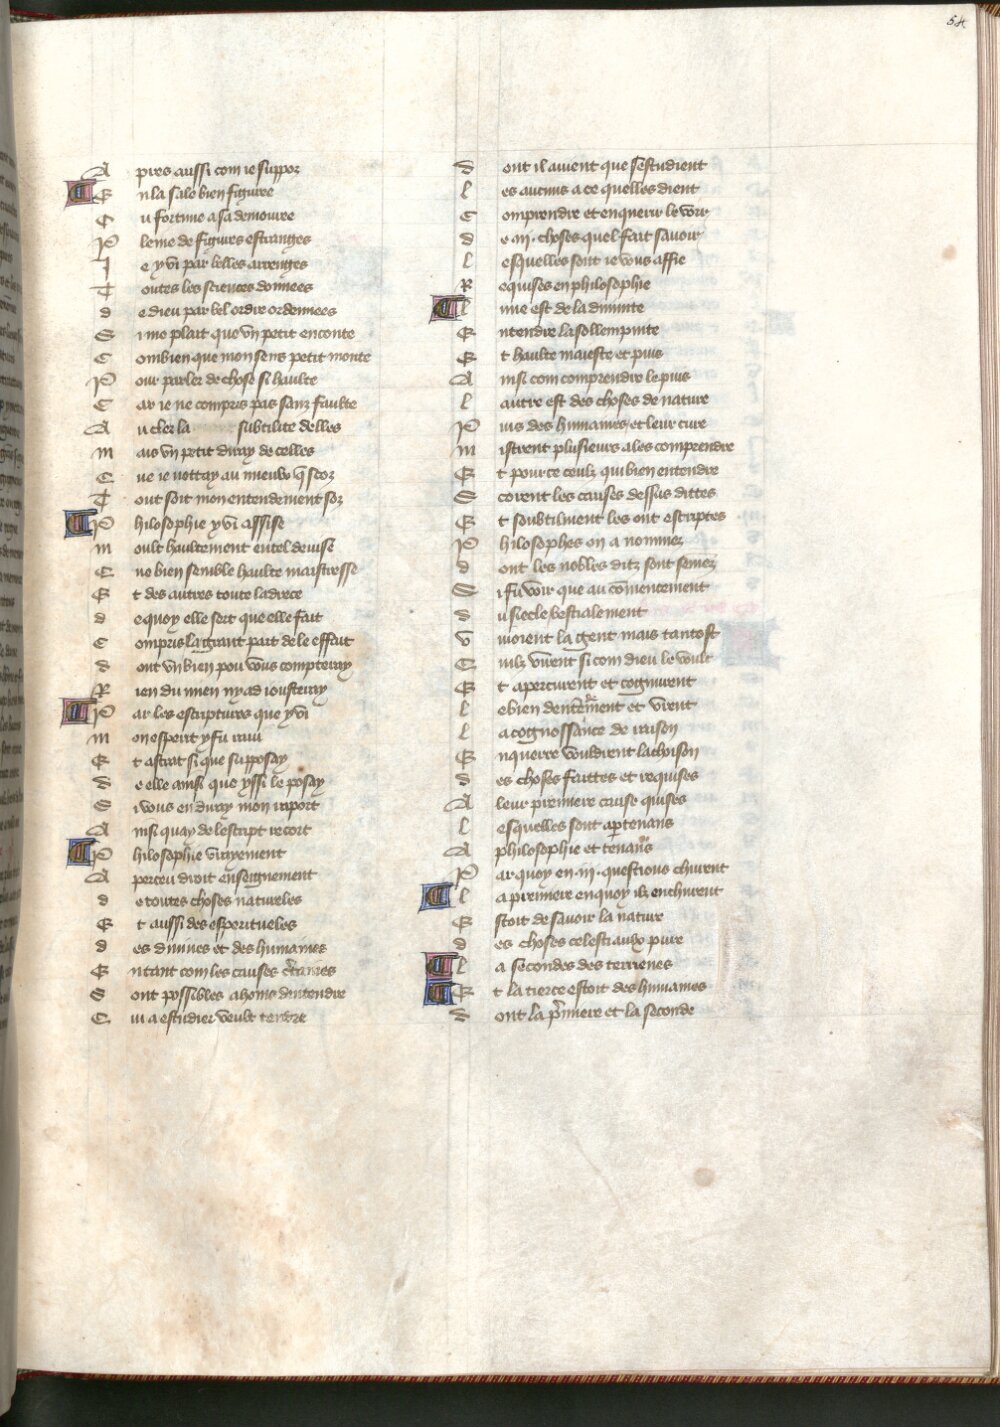 54
Apres aussi com ie suppoz
En la sale bien figuree
Cu fortune a sa demouree
Pleine de figures estranges
Ie y vi par belles arrenges
Toutes les sciences donnees
de dieu par bel ordre ordennees
Si me plaist que vn petit enconte
Combien que mon sens petit monte
Pour parler de chose si haulte
Car ie ne compris pas sanz faulte
A cler la subtilite delles
mais vn petit diray de celles
Que ie nottay au mieulx q̄ scoz
Tout soit mon entendement soz
Philosophie y vi assise
moult haultement en tel deuise
Que bien semble haulte maistresse
Et des autres toute ladrece
de quoy elle sert que elle fait
Compris la grant part de le effait
dont vn bien pou vous compteray
Rien du mien ny adiousteray
Par les escriptures que y vi
mon esperit y fu raui
Et astrat si que supposay
de elle ainsi que yssi le posay
Si vous en diray mon raport
Ainsi quay de lescript recort
Philosophie vrayement
Aperceu droit enseignement
de toutes choses natureles
Et aussi des esperitueles
des diuines et des humaines
Entant com les causes c̄taines
Sont possibles a homs dentendre
Cui a estudier veult tendre
dont il auient que sestudient
les aucuns a ce quelles dient
Comprendre et enquerir le voir
de .iii. choses quel fait sauoir
lesquelles sont ie vous affie
Requises en philosophie
lune est de la diuinite
Entendre la sollempnite
Et haulte maieste et puis
Ainsi com comprendre le puis
lautre est des choses de nature
Puis des humaines et leur cure
mistrent plusieurs a les comprendre
Et pour ce ceulx qui bien entendre
Scorent les causes dessus dittes
Et soubtilment les ont escriptes
Philosophes on a nommez
dont les nobles ditz sont semez
Si fu voir que au cōmencement
du siecle bestialement
viuoient la gent mais tantost
Cuilz virent si com dieu le voult
Et apercurent et cognurent
le bien dentēment et virent
la cognoissance de raison
Enquerre vouldrent lachoison
des choses faittes et requises
A leur premiere cause quises
lesquelles sont ap̄tenans
A philosophie et tenans
Par quoy en .iii. questions chiurent
la premiere en quoy ilz enchiurent
Estoit de sauoir la nature
des choses celestiaulx pure
la secondes des terrienes
Et la tierce estoit des humaines
dont la p̄miere et la seconde